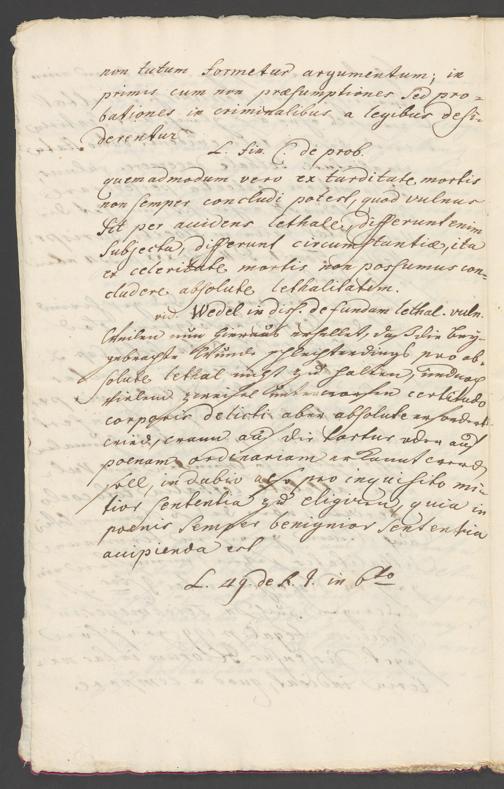 non tutum formetur argumentum; in
primis cum non præsumptiones sed pro-
bationes in criminalibus a legibus desi-
derentur
L. fin. C. de prob.
quemadmodum vero ex tarditate mortis
non semper concludi potest, quod vulnus
sit per accidens lethale, differunt enim
subjecta, differunt circumstantiæ, ita
ex celeritate mortis non possumus con-
cludere absolute lethalitatem.
vid. Wedel in diss. de fundam. lethal. vuln.
Weilen nun hieraus erhellet, daß die bey-
gebrachte Wunde schlechterdings pro ab-
solute lethal nicht zu halten, und
zweifel unterworfen certitudo
corporis delicti aber absolute erfordert
wird, wann auf die tortur oder auf
poenam ordinariam erkannt werden
soll, in dubio also pro inquisito mi-
tior sententia zu eligiren, quia in
poenis semper benignior sententia
accipienda est
L. 49. de R. J. in 6to